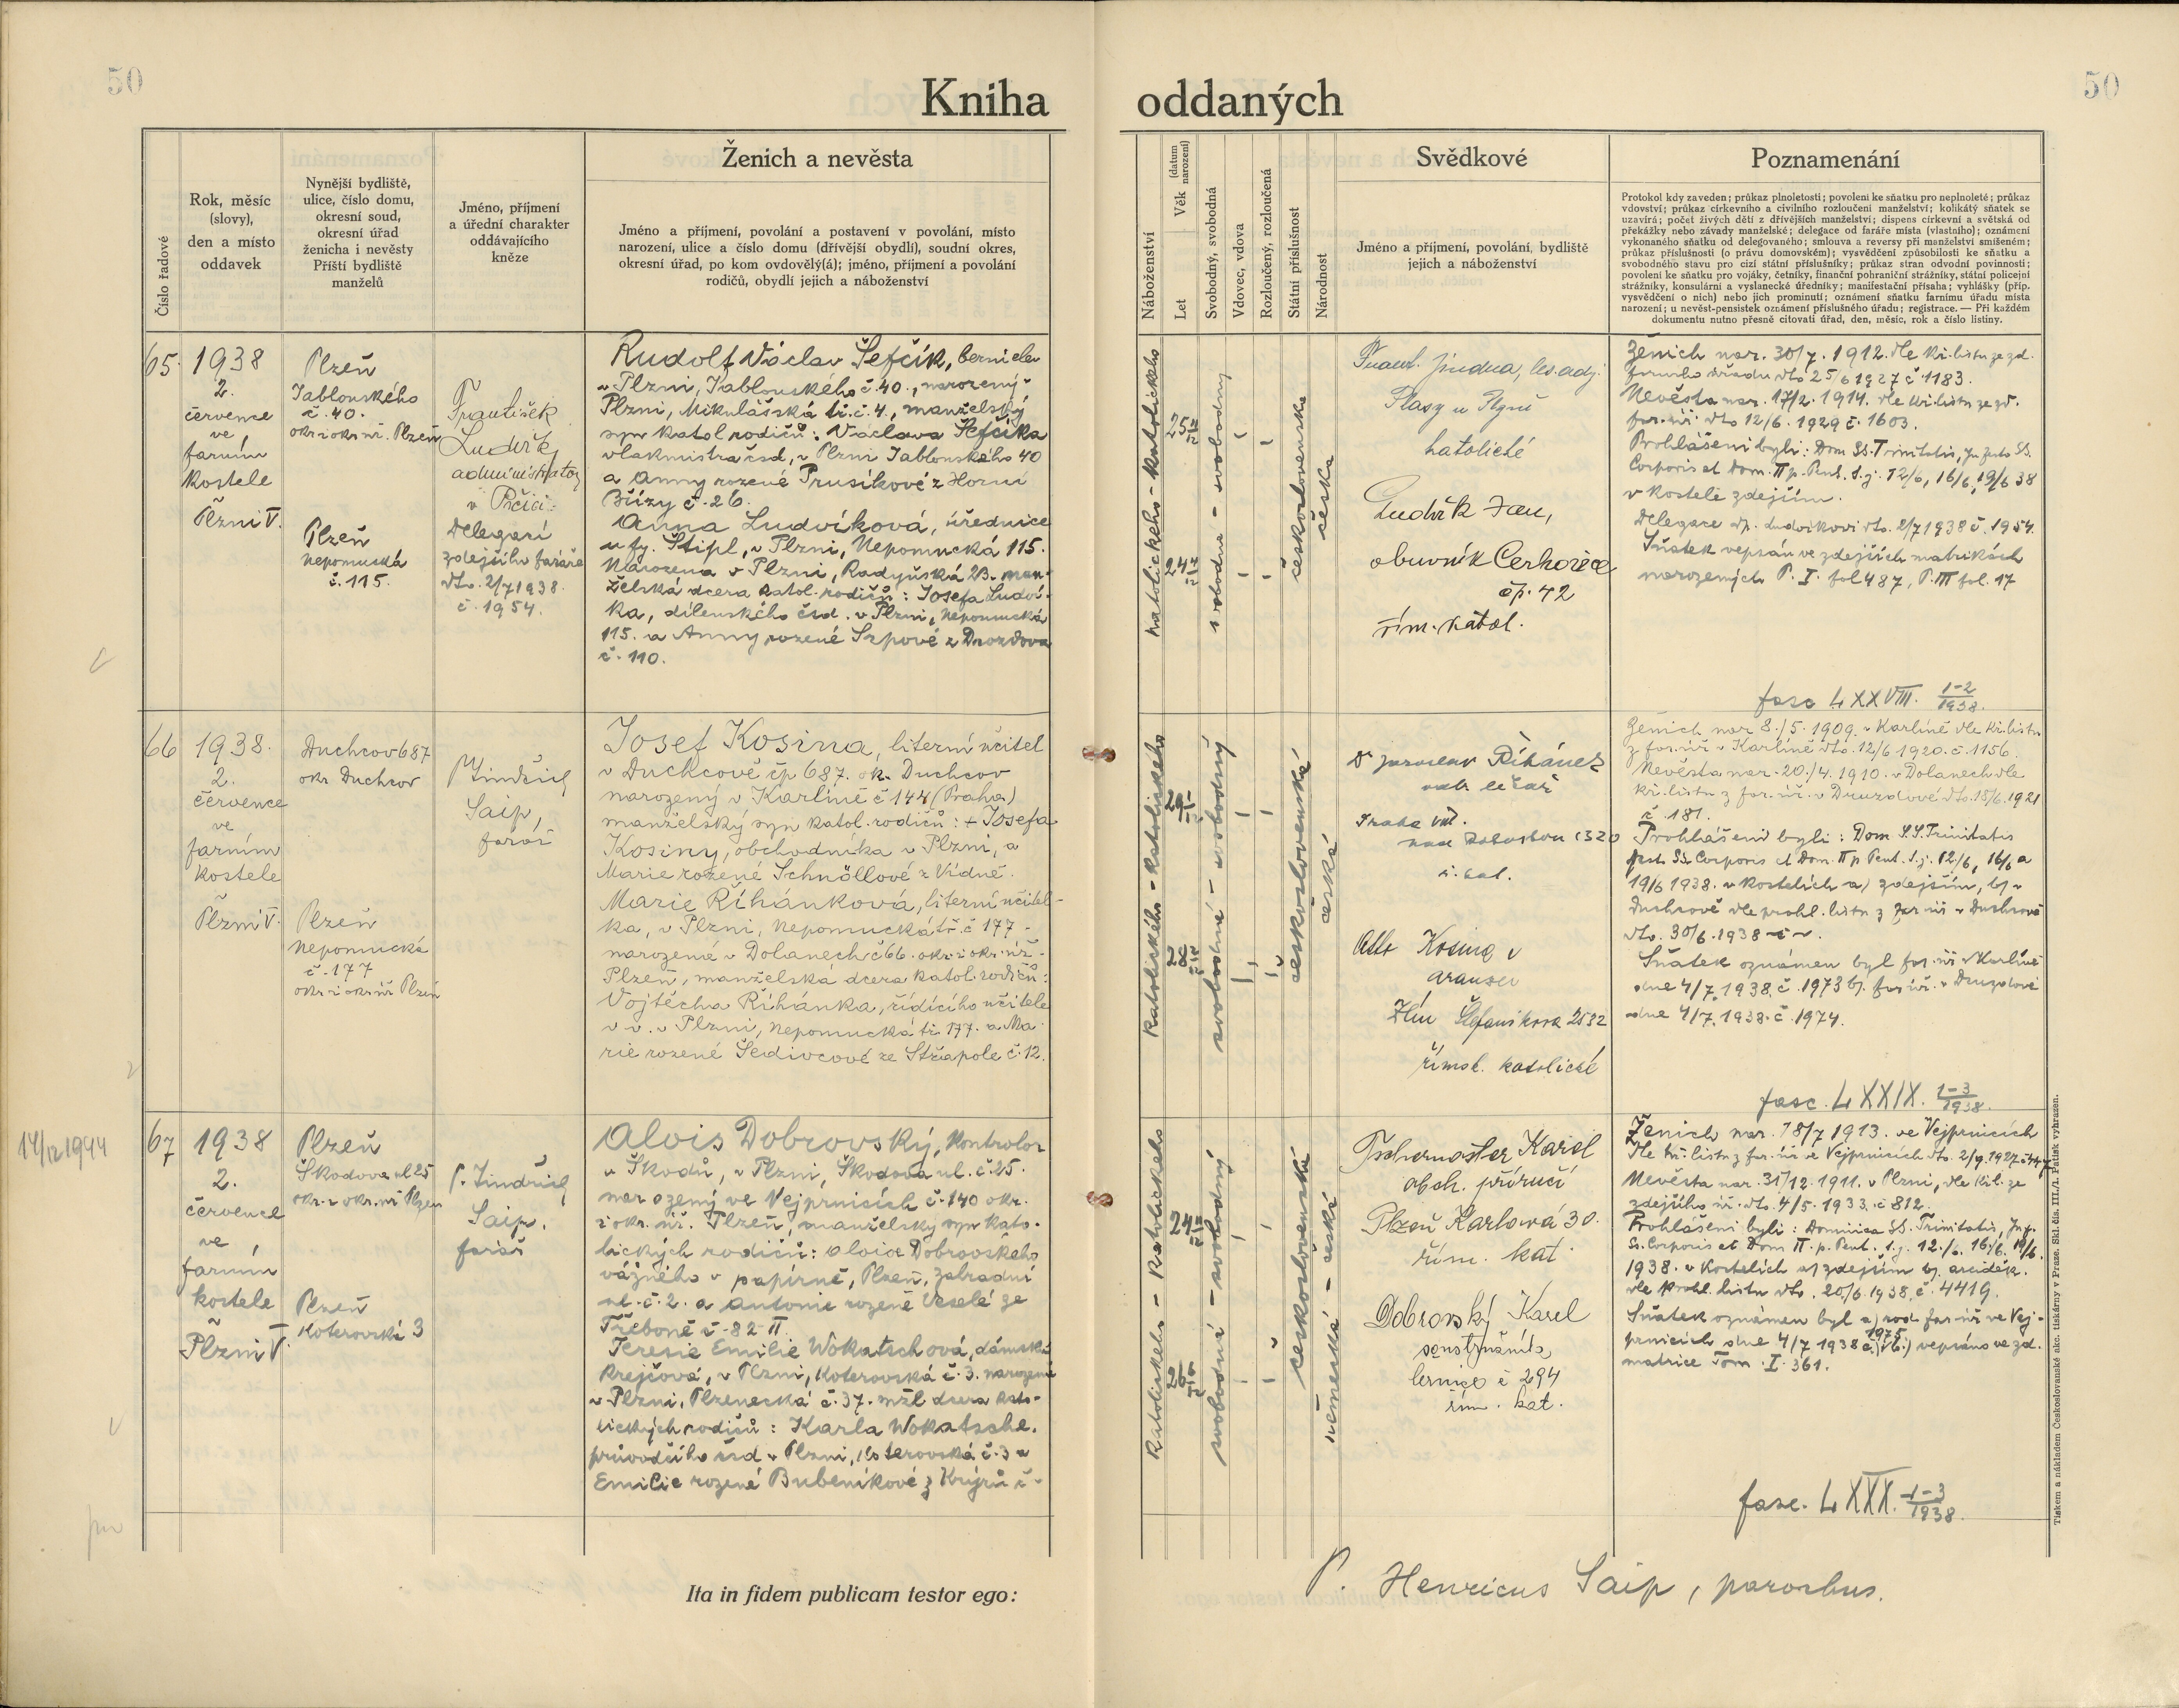 50
50
Kniha oddaných
Číslo řadové
Rok, měsíc
(slovy),
den a místo
oddavek
Nynější bydliště,
ulice, číslo domu,
okresní soud,
okresní úřad
ženicha i nevěsty
Příští bydliště
manželů
Jméno, příjmení
a úřední charakter
oddávajícího
kněze
Ženich a nevěsta
Jméno a příjmení, povolání a postavení v povolání, místo
narození, ulice a číslo domu (dřívější obydlí), soudní okres,
okresní úřad, po kom ovdovělý(á); jméno, příjmení a povolání
rodičů, obydlí jejich a náboženství
Náboženství
Let
Věk (datum narození)
Svobodný, svobodná
Vdovec, vdova
Rozloučený, rozloučená
Státní příslušnost
Národnost
Svědkové
Jméno a příjmení, povolání, bydliště
jejich a náboženství
Poznamenání
Protokol kdy zaveden; průkaz plnoletosti; povolení ke sňatku pro neplnoleté; průkaz
vdovství; průkaz církevního a civilního rozloučení manželství; kolikátý sňatek se
uzavírá; počet živých dětí z dřívějších manželství; dispens církevní a světská od
překážky nebo závady manželské; delegace od faráře místa (vlastního); oznámení
vykonaného sňatku od delegovaného; smlouva a reversy při manželství smíšeném;
průkaz příslušnosti (o právu domovském); vysvědčení způsobilosti ke sňatku a
svobodného stavu pro cizí státní příslušníky; průkaz stran odvodní povinnosti;
povolení ke sňatku pro vojáky, četníky, finanční pohraniční strážníky, státní policejní
strážníky, konsulární a vyslanecké úředníky; manifestační přísaha; vyhlášky (příp.
vysvědčení o nich) nebo jich prominutí; oznámení sňatku farnímu úřadu místa
narození; u nevěst-pensistek oznámení příslušného úřadu; registrace. — Při každém
dokumentu nutno přesně citovati úřad, den, měsíc, rok a číslo listiny.
65.
1938
2.
července
ve
farním
kostele
Plzni V.
Plzeň
Jablonského
č. 40.
okr. i okr. úř. Plzeň
Plzeň
Nepomucká
č. 115.
František
Ludvík
administrátor
v Prčici
Delegací
zdejšího faráře
dto. 2/7 1938.
č. 1954.
Rudolf Václav Šefčík, berní elev
v Plzni, Jablonského č. 40., narozený v
Plzni, Mikulášská tř. č. 4., manželský
syn katol. rodičů: Václava Šefčíka
vlakmistra čsd., v Plzni Jablonského 40
a Anny rozené Prusíkové z Horní
Břízy č. 26.
Anna Ludvíková, úřednice
u fy. Štipl, v Plzni, Nepomucká 115.
Narozena v Plzni, Radyňská 23. man-
želská dcera katol. rodičů: Josefa Ludví-
ka, dílenského čsd. v Plzni, Nepomucká
115. a Anny rozené Srpové z Drozdova
č. 110.
katolického - katolického
25 11/12
24 4/12
svobodná - svobodný
československá
česká
Frant. Jindra, les. adj.
Plasy u Plzně
katolické
Ludvík Jan,
obuvník Cerhovice
čp. 42
řím. katol.
Ženich nar. 30/7. 1912. dle kř. listu ze zd.
farního úřadu dto 25/6 1927 č. 1183.
Nevěsta nar. 17/2. 1914. dle kř. listu ze zd.
far. úř. dto 12/6. 1929 č. 1603.
Prohlášeni byli: Dom SS. Trinitatis, In festo SS.
Corporis et Dom. II p. Pent. t. j. 12/6, 16/6, 19/6 38
v kostele zdejším.
Delegace dp. Ludvíkovi dto. 2/7 1938 č. 1954.
Sňatek vepsán ve zdejších matrikách
narozených P. I. fol 487, P. III fol. 17
fasc LXXVIII. 1-2/1938.
66
1938.
2.
července
ve
farním
kostele
Plzni V.
Duchcov 687
okr. Duchcov
Plzeň
Nepomucká
č. 177
okr. i okr. úř. Plzeň
P. Jindřich
Saip,
farář
Josef Kosina, literní učitel
v Duchcově čp 687. ok. Duchcov
narozený v Karlíně č 144 (Praha)
manželský syn katol. rodičů: + Josefa
Kosiny, obchodníka v Plzni, a
Marie rozené Schnöllové z Vídně.
Marie Říhánková, literní učitel-
ka, v Plzni, Nepomucká tř. č 177
narozené v Dolanech č 66. okr. i okr. úř.
Plzeň, manželská dcera katol. rodičů:
Vojtěcha Říhánka, řídícího učitele
v v. v Plzni, Nepomucká tř. 177. a Ma-
rie rozené Šedivcové ze Střapole č. 12.
Katolického - katolického
29
28
svobodná - svobodný
československá
česká
Dr Jaroslav Říhánek
Praha VIII.
ř. kat.
Kosina
Zlín Štefanikova 2532
římsk. katolické
Ženich nar 8./5. 1909. v Karlíně dle kř. listu
z far. úř. v Karlíně dto. 12/6 1920. č. 1156.
Nevěsta nar. 20./4. 1910. v Dolanech dle
kř. listu z far. úř. v Druzdové dto. 18/6. 1921
č. 181.
Prohlášeni byli: Dom S.S. Trinitatis
fest. SS. Corporis et Dom. II p. Pent. t. j. 12/6, 16/6 a
19/6 1938. v kostelích a) zdejším, b) v
Duchcově dle prohl. listu z far úř v Duchcově
dto. 30/6. 1938
Sňatek oznámen byl far. úř. v Karlíně
dne 4/7. 1938. č. 1973 b). far úř. v Druzdové
dne 4/7. 1938. č. 1974.
fasc. LXXIX. 1-3/1938.
14/12 1944
67
1938
2.
července
ve
farním
kostele
Plzni V.
Plzeň
Škodova ul 25
okr. i okr. úř Plzeň
Plzeň
Koterovská 3
P. Jindřich
Saip.
farář
Alois Dobrovský, kontrolor
u Škodů, v Plzni, Škodova ul. č. 25.
narozený ve Vejprnicích č. 140 okr.
i okr. úř. Plzeň, manželský syn kato-
lických rodičů: Aloise Dobrovského
vážného v papírně, Plzeň, Zahradní
ul. č. 2. a Antonie rozené Veselé ze
Třeboně č. 82 II.
Teresie Emilie Wokatschová, dámská
krejčová, v Plzni, Koterovská č. 3. narozená
v Plzni, Plzenecká č. 37. mžl dcera kato-
lických rodičů: Karla Wokatsche,
průvodčího čsd v Plzni, Koterovská č. 3 a
Emilie rozené Bubeníkové z Krýrů č.
Katolického - katolického
24
26
svobodná - svobodný
československá
německá - česká
Tschernoster Karel
obch. příručí
Plzeň Karlová 30.
řím. kat.
Dobrovský Karel
č 294
řím. kat.
Ženich nar. 18/7 1913. ve Vejprnicích
dle kř. listu z far. úř ve Vejprnicích dto. 2/9. 1927
Nevěsta nar. 31/12. 1911. v Plzni, dle kř. l. ze
zdejšího úř. dto. 4/5. 1933. č 812.
Prohlášeni byli: Dominica SS. Trinitatis, In f.
SS. Corporis et Dom II. p. Pent. t. j. 12./6. 16./6. 19/6.
1938. v kostelích a) zdejším b) arciděk.
dle prohl. listu dto. 20/6. 1938, č. 4419.
Sňatek oznámen byl a) rod. far. úř ve Vej-
prnicích dne 4/7 1938 č. 1975 b) vepsáno ve zd.
matrice Tom. I. 361.
fasc. LXXX. 1-3/1938.
Ita in fidem publicam testor ego:
P. Henricus Saip, parochus.
Tiskem a nákladem Československé akc. tiskárny v Praze. Skl. čís. III./1. Patisk vyhrazen.